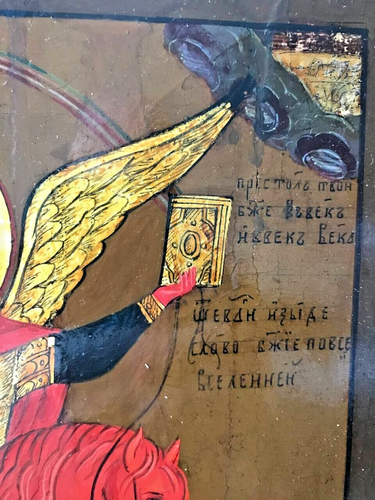 престолъ твои
бж҃е въвекъ
ивъвекъ века
ѿевд҃ли изыде
слово бж҃їе повсеи
вселеннеи